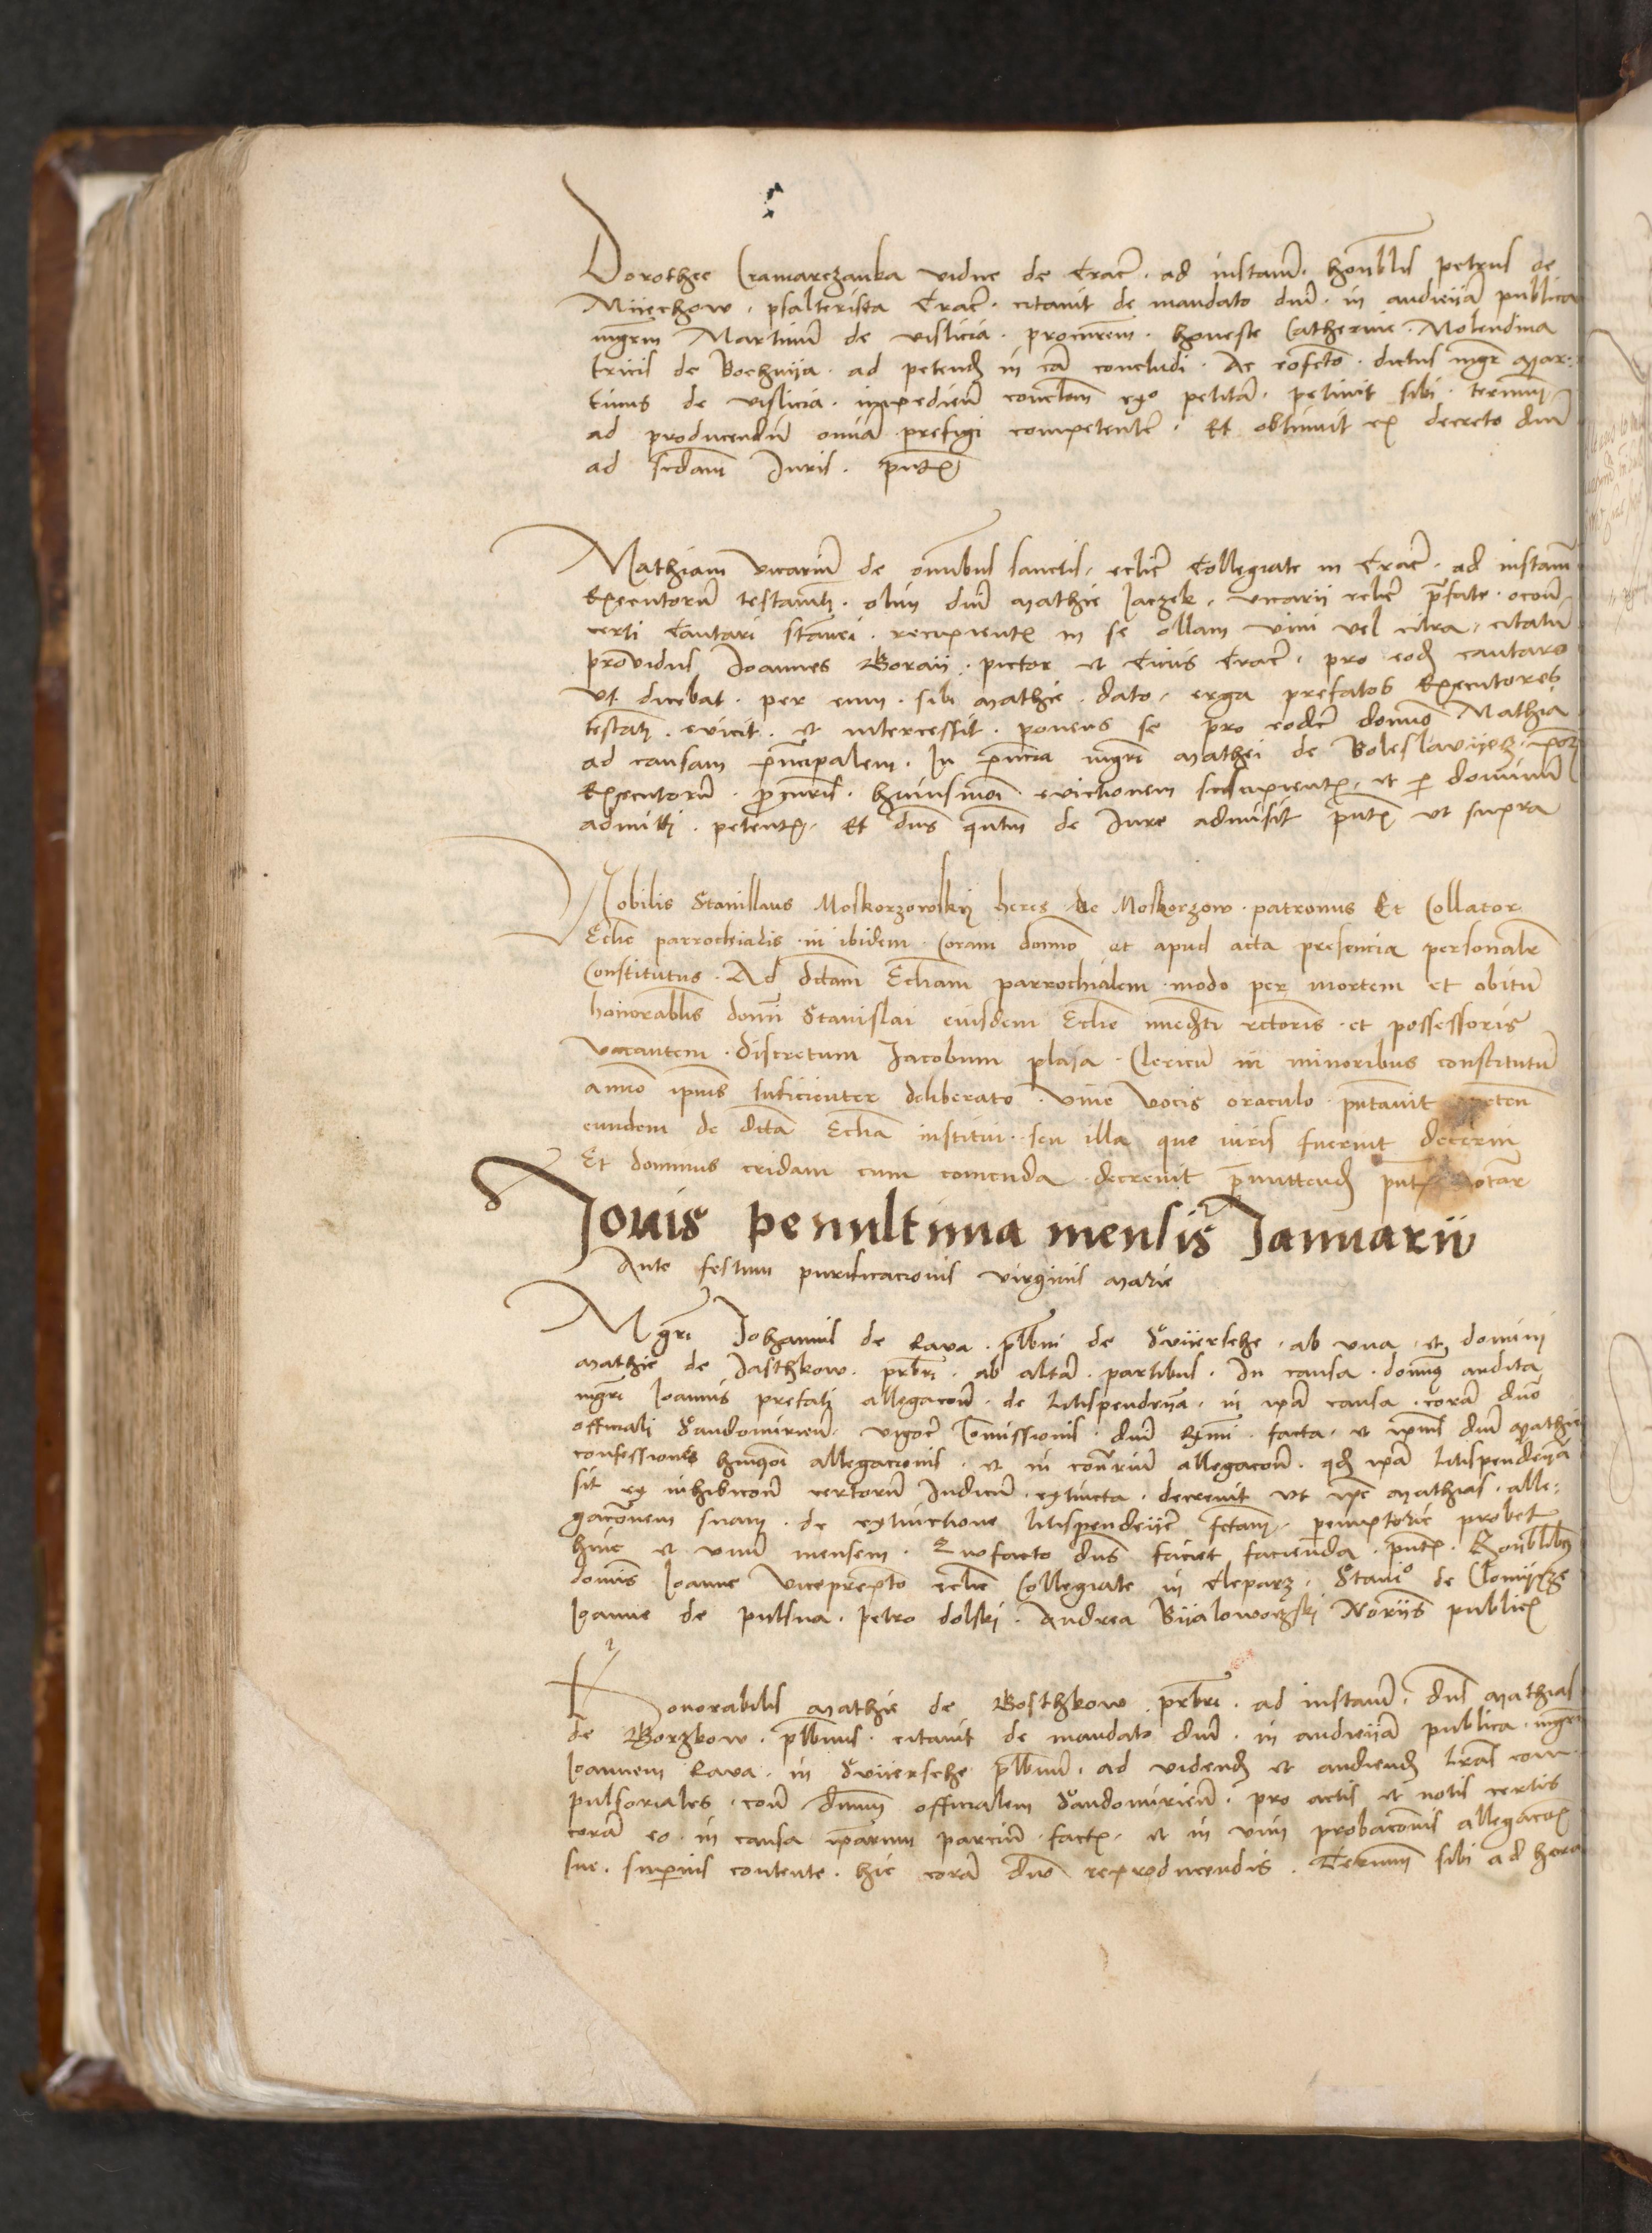 Dorothee Cramarczanka vidue de Crac̄ · ad instanc̄ · honblis petrus de
Myechow · psalterista Crac̄ · citavit de mandato dnī · in audiēcia publica
mgrm Martinū de vislicia · procurem · honeste Catherine · Molendina
tricis de Bochnya · ad petend in cā concludi · Ac eofcto · dictus mgr Mar:
tinus de vislicia · impedien conclōm ex petitā · petivit sibi · terminū
ad producendū omīa prefigi competentē · Et obtinuit ex decreto dnī
ad scdam Juris · pntꝫ
Mathiam vicariū de omībus sanctis · ecliē Collegiate in Crac̄ · ad instanc̄
Executorū testamti · olim dnī Mathie Jaczek · vicarii eclie prefate · occōe
certi Cantari stannei · recipientꝫ in se ollam vini vel citra · citatū
providus Joannes Goraii · pictor et Civis Crac̄ · pro eod cantaro
ut dicebat · per eum · sibi Mathie · dato · erga prefatos Executores
testamti · evicit · et intercessit · ponens se pro eodē domno Mathia
ad causam principalem · In pn̄cia mgri Mathei de Boleslavyecz
Executorū · procuris · huiusmōi evictionem suscipientꝫ · et p dominū
admitti · petentꝫ · Et dns qntum de Jure admisit pntꝫ ut supra
Nobilis Stanislaus Moskorzowskij heres de Moskorzow · patronus Et Collator
Eclie parrochialis · in ibidem · Coram domno et apud acta presencia personalr
Constitutus · Ad dctam Ecliam parrochialem · modo per mortem et obitū
honorablis domni Stanislai eiusdem Eclie immedti rctoris · et possessoris
vacantem · discretum Jacobum plaza · Clericū in minoribus constitutū
animo ipsius suficienter deliberato · vive vocis oraculo pntavit peten
eundem de dcta Eclia institui · seu illa que iuris fuerint decerni
Et dominus cridam cum comenda decrevit p̄mittend pntꝫ notar
Jovis penultima mensis Januarii
Ante festum purificacionis virginis Marie
Mgri Johannis de Rava · plbni de Swyersche · ab una · et domini
Mathie de Jasthkow · prbri · ab altā · partibus · In causa · domnus audita
mgri Joannis prefati allegacōe · de litispendēcia · in ipā causa · corā dno
officiali Sandomirien · vigore Comissionis · dnī Rmi · facta · et ipsius dnī Mathie
confessiones huiusmōi allegacionis · et in contrariū allegacōe · qd ipā litispendēcia
sit ex inhibicōe certorū Judicū · extincta · decrevit ut ipe Mathias · alle:
gacōnem suam · de extinctione litispendēcie fctam · peremptorie probet
hinc et unū mensem · Quofacto dns faciet facienda · pntꝫ · Honblibꝫ
domnis Joanne viceprepto eclie Collegiate in Cleparz · Stanio de Clomycze
Joanne de pulsna · petro dolski · Andrea Byalowoczski Noriis publicꝫ
Honorabilis Mathie de Gosthkow prbri · ad instanc̄ · dns Mathias
de Gorzkow · plbnus · citavit de mandato dnī · in audiēcia publica · mgrm
Joannem Rava · in Swyersche plbnū · ad vidend et audiend lras com
pulsoriales · con dnum officialem Sandomirien · pro actis et notis certis
corā eo · in causa ipārum parciū · factꝫ · et in vim probacōnis allegacōnꝫ
sue · superius contente · hic corā dno reproducendis · Terminū sibi ad hora